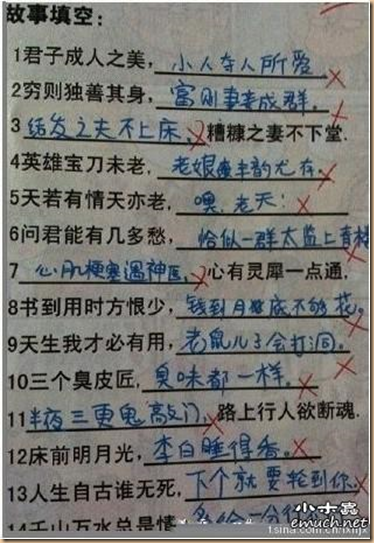 故事填空:
1君子成人之美，小人夺人所爱
2穷则独善其身，富则妻妾成群。
3 结发之夫不上床，糟糠之妻不下堂.
4英雄宝刀未老，老娘丰韵尤存。
5天若有情天亦老，噢，老天!
6问君能有几多愁，恰似一群太监上青楼
7 心肌梗塞遇神医，心有灵犀一点通，
8书到用时方恨少，钱到月底不够花。
9天生我才必有用，老鼠儿子会打洞。
10三个臭皮匠，臭味都一样。
11半夜三更鬼敲门，路上行人欲断魂.
12床前明月光，李白睡得香。
13人生自古谁无死，下个就要轮到你.
14千山万水总是情
小木虫
emuch.net